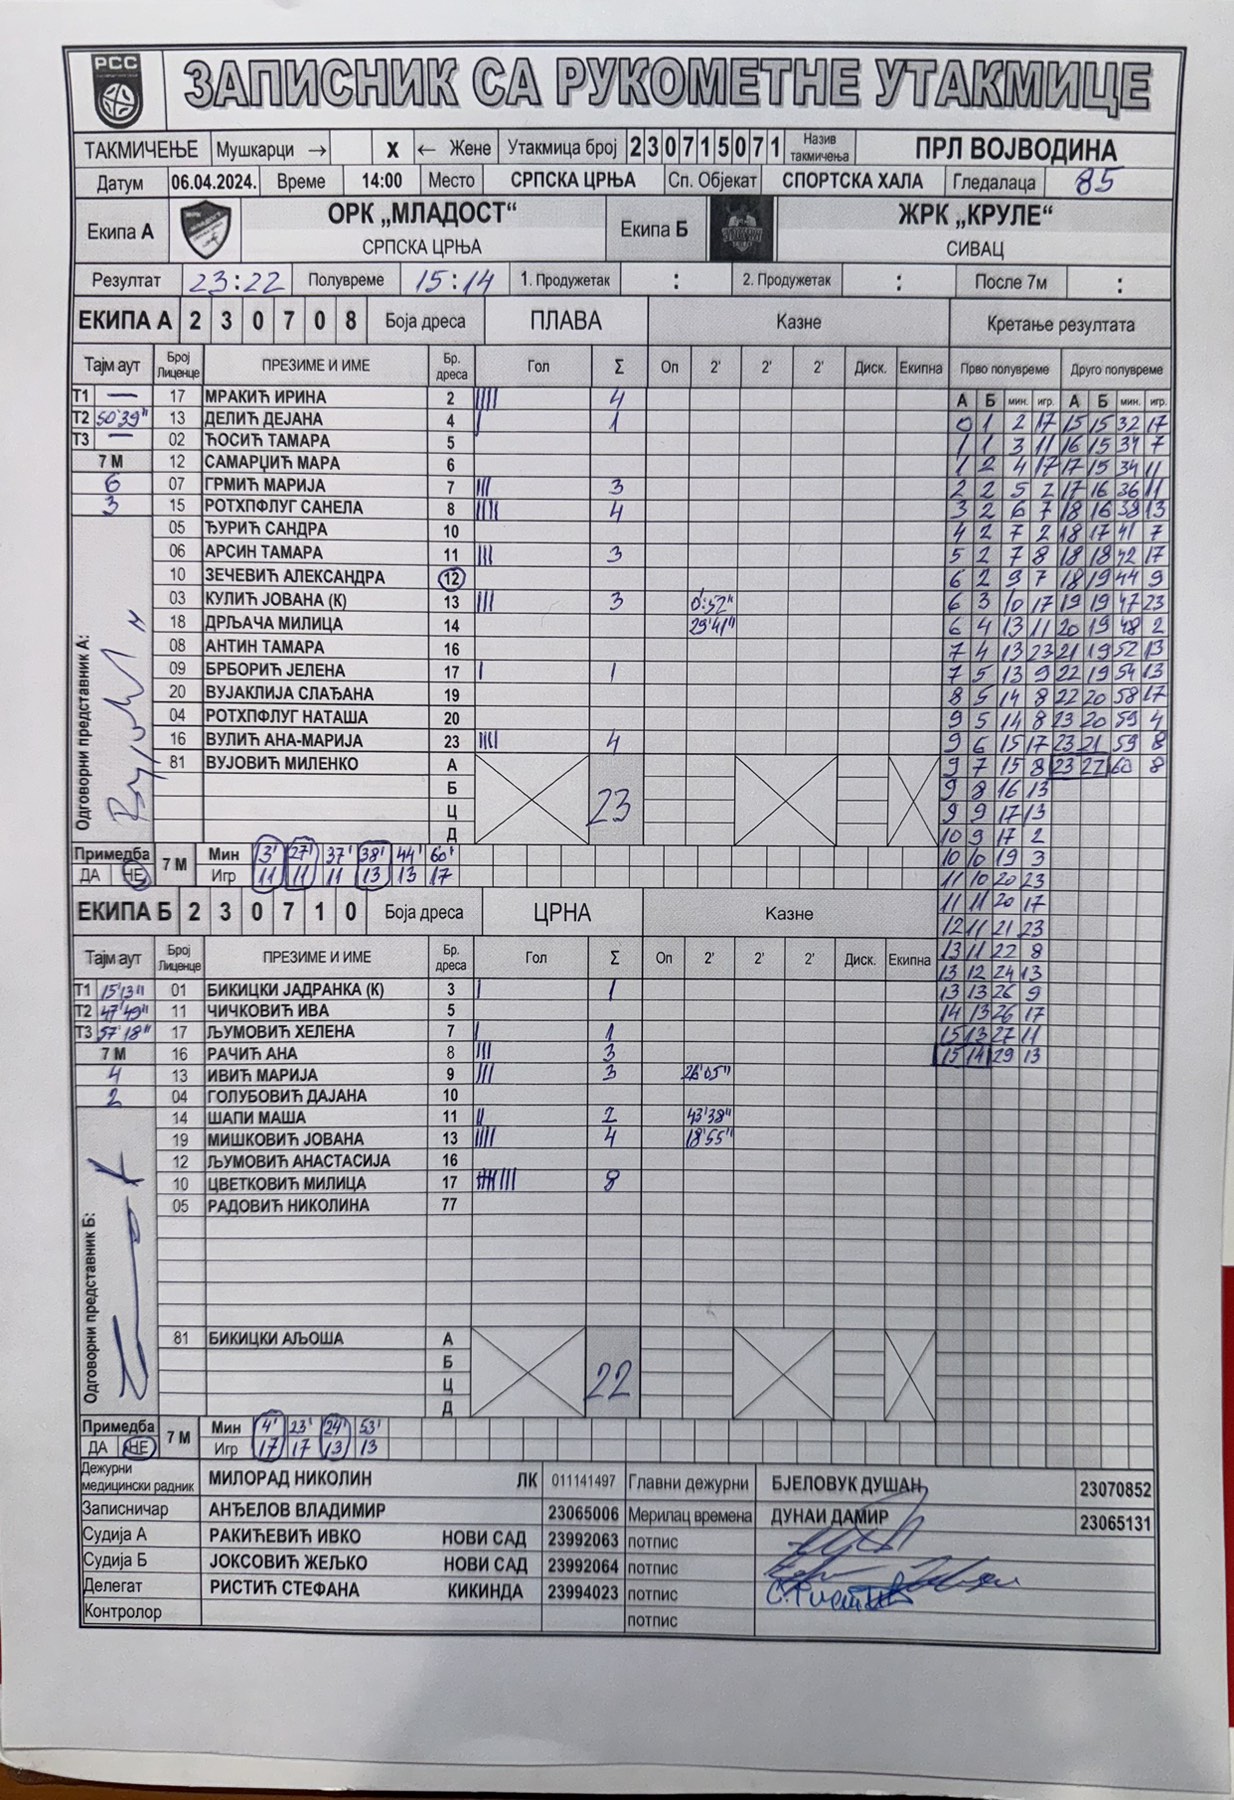 РСС
ЗАПИСНИК СА РУКОМЕТНЕ УТАКМИЦЕ
ТАКМИЧЕЊЕ Мушкарци → X ← Жене Утакмица број 230715071 Назив такмичења ПРЛ ВОЈВОДИНА
Датум 06.04.2024. Време 14:00 Место СРПСКА ЦРЊА Сп. Објекат СПОРТСКА ХАЛА Гледалаца 85
Екипа А ОРК „МЛАДОСТ“ Екипа Б ЖРК „КРУЛЕ“
СРПСКА ЦРЊА СИВАЦ
Резултат 23:22 Полувреме 15:14 1. Продужетак : 2. Продужетак : После 7м :
ЕКИПА А 2 3 0 7 0 8 Боја дреса ПЛАВА Казне Кретање резултата
Тајм аут Број Лиценце ПРЕЗИМЕ И ИМЕ Бр. дреса Гол Σ Оп 2' 2' 2' Диск. Екипна Прво полувреме Друго полувреме
Т1 — 17 МРАКИЋ ИРИНА 2 |||| 4 А Б мин. игр. А Б мин. игр.
Т2 50'39" 13 ДЕЛИЋ ДЕЈАНА 4 | 1 0 1 2 17 15 15 32 17
Т3 — 02 ЋОСИЋ ТАМАРА 5 1 1 3 11 16 15 34 7
7 М 12 САМАРЏИЋ МАРА 6 1 2 4 17 17 15 34 11
6 07 ГРМИЋ МАРИЈА 7 ||| 3 2 2 5 2 17 16 36 11
3 15 РОТХПФЛУГ САНЕЛА 8 |||| 4 3 2 6 7 18 16 39 13
05 ЂУРИЋ САНДРА 10 4 2 7 2 18 17 41 7
06 АРСИН ТАМАРА 11 ||| 3 5 2 7 8 18 18 42 17
10 ЗЕЧЕВИЋ АЛЕКСАНДРА 12 6 2 9 7 18 19 44 9
03 КУЛИЋ ЈОВАНА (К) 13 ||| 3 0:52" 6 3 10 17 19 19 47 23
18 ДРЉАЧА МИЛИЦА 14 29'41" 6 4 13 11 20 19 48 2
08 АНТИН ТАМАРА 16 7 4 13 23 21 19 52 13
09 БРБОРИЋ ЈЕЛЕНА 17 | 1 7 5 13 9 22 19 54 13
20 ВУЈАКЛИЈА СЛАЂАНА 19 8 5 14 8 22 20 58 17
04 РОТХПФЛУГ НАТАША 20 9 5 14 8 23 20 59 4
16 ВУЛИЋ АНА-МАРИЈА 23 |||| 4 9 6 15 17 23 21 59 8
81 ВУЈОВИЋ МИЛЕНКО А 9 7 15 8 23 22 60 8
Б 9 8 16 13
Ц 23 9 9 17 13
Д 10 9 17 2
Одговорни представник А:
Примедба 7 М Мин 3' 27' 37' 38' 44' 60' 10 10 19 3
ДА НЕ Игр 11 11 11 13 13 17 11 10 20 23
ЕКИПА Б 2 3 0 7 1 0 Боја дреса ЦРНА Казне 11 11 20 17
12 11 21 23
Тајм аут Број Лиценце ПРЕЗИМЕ И ИМЕ Бр. дреса Гол Σ Оп 2' 2' 2' Диск. Екипна 13 11 22 8
13 12 24 13
Т1 15'13" 01 БИКИЦКИ ЈАДРАНКА (К) 3 | 1 13 13 26 9
Т2 47'49" 11 ЧИЧКОВИЋ ИВА 5 14 13 26 17
Т3 57'18" 17 ЉУМОВИЋ ХЕЛЕНА 7 | 1 15 13 27 11
7 М 16 РАЧИЋ АНА 8 ||| 3 15 14 29 13
4 13 ИВИЋ МАРИЈА 9 ||| 3 26'05"
2 04 ГОЛУБОВИЋ ДАЈАНА 10
14 ШАПИ МАША 11 || 2 43'38"
19 МИШКОВИЋ ЈОВАНА 13 |||| 4 18'55"
12 ЉУМОВИЋ АНАСТАСИЈА 16
10 ЦВЕТКОВИЋ МИЛИЦА 17 |||| ||| 8
05 РАДОВИЋ НИКОЛИНА 77
Одговорни представник Б:
81 БИКИЦКИ АЉОША А
Б
Ц 22
Д
Примедба 7 М Мин 4' 23' 24' 53'
ДА НЕ Игр 17 17 13 13
Дежурни медицински радник МИЛОРАД НИКОЛИН ЛК 011141497 Главни дежурни БЈЕЛОВУК ДУШАН 23070852
Записничар АНЂЕЛОВ ВЛАДИМИР 23065006 Мерилац времена ДУНАИ ДАМИР 23065131
Судија А РАКИЋЕВИЋ ИВКО НОВИ САД 23992063 потпис
Судија Б ЈОКСОВИЋ ЖЕЉКО НОВИ САД 23992064 потпис
Делегат РИСТИЋ СТЕФАНА КИКИНДА 23994023 потпис
Контролор потпис